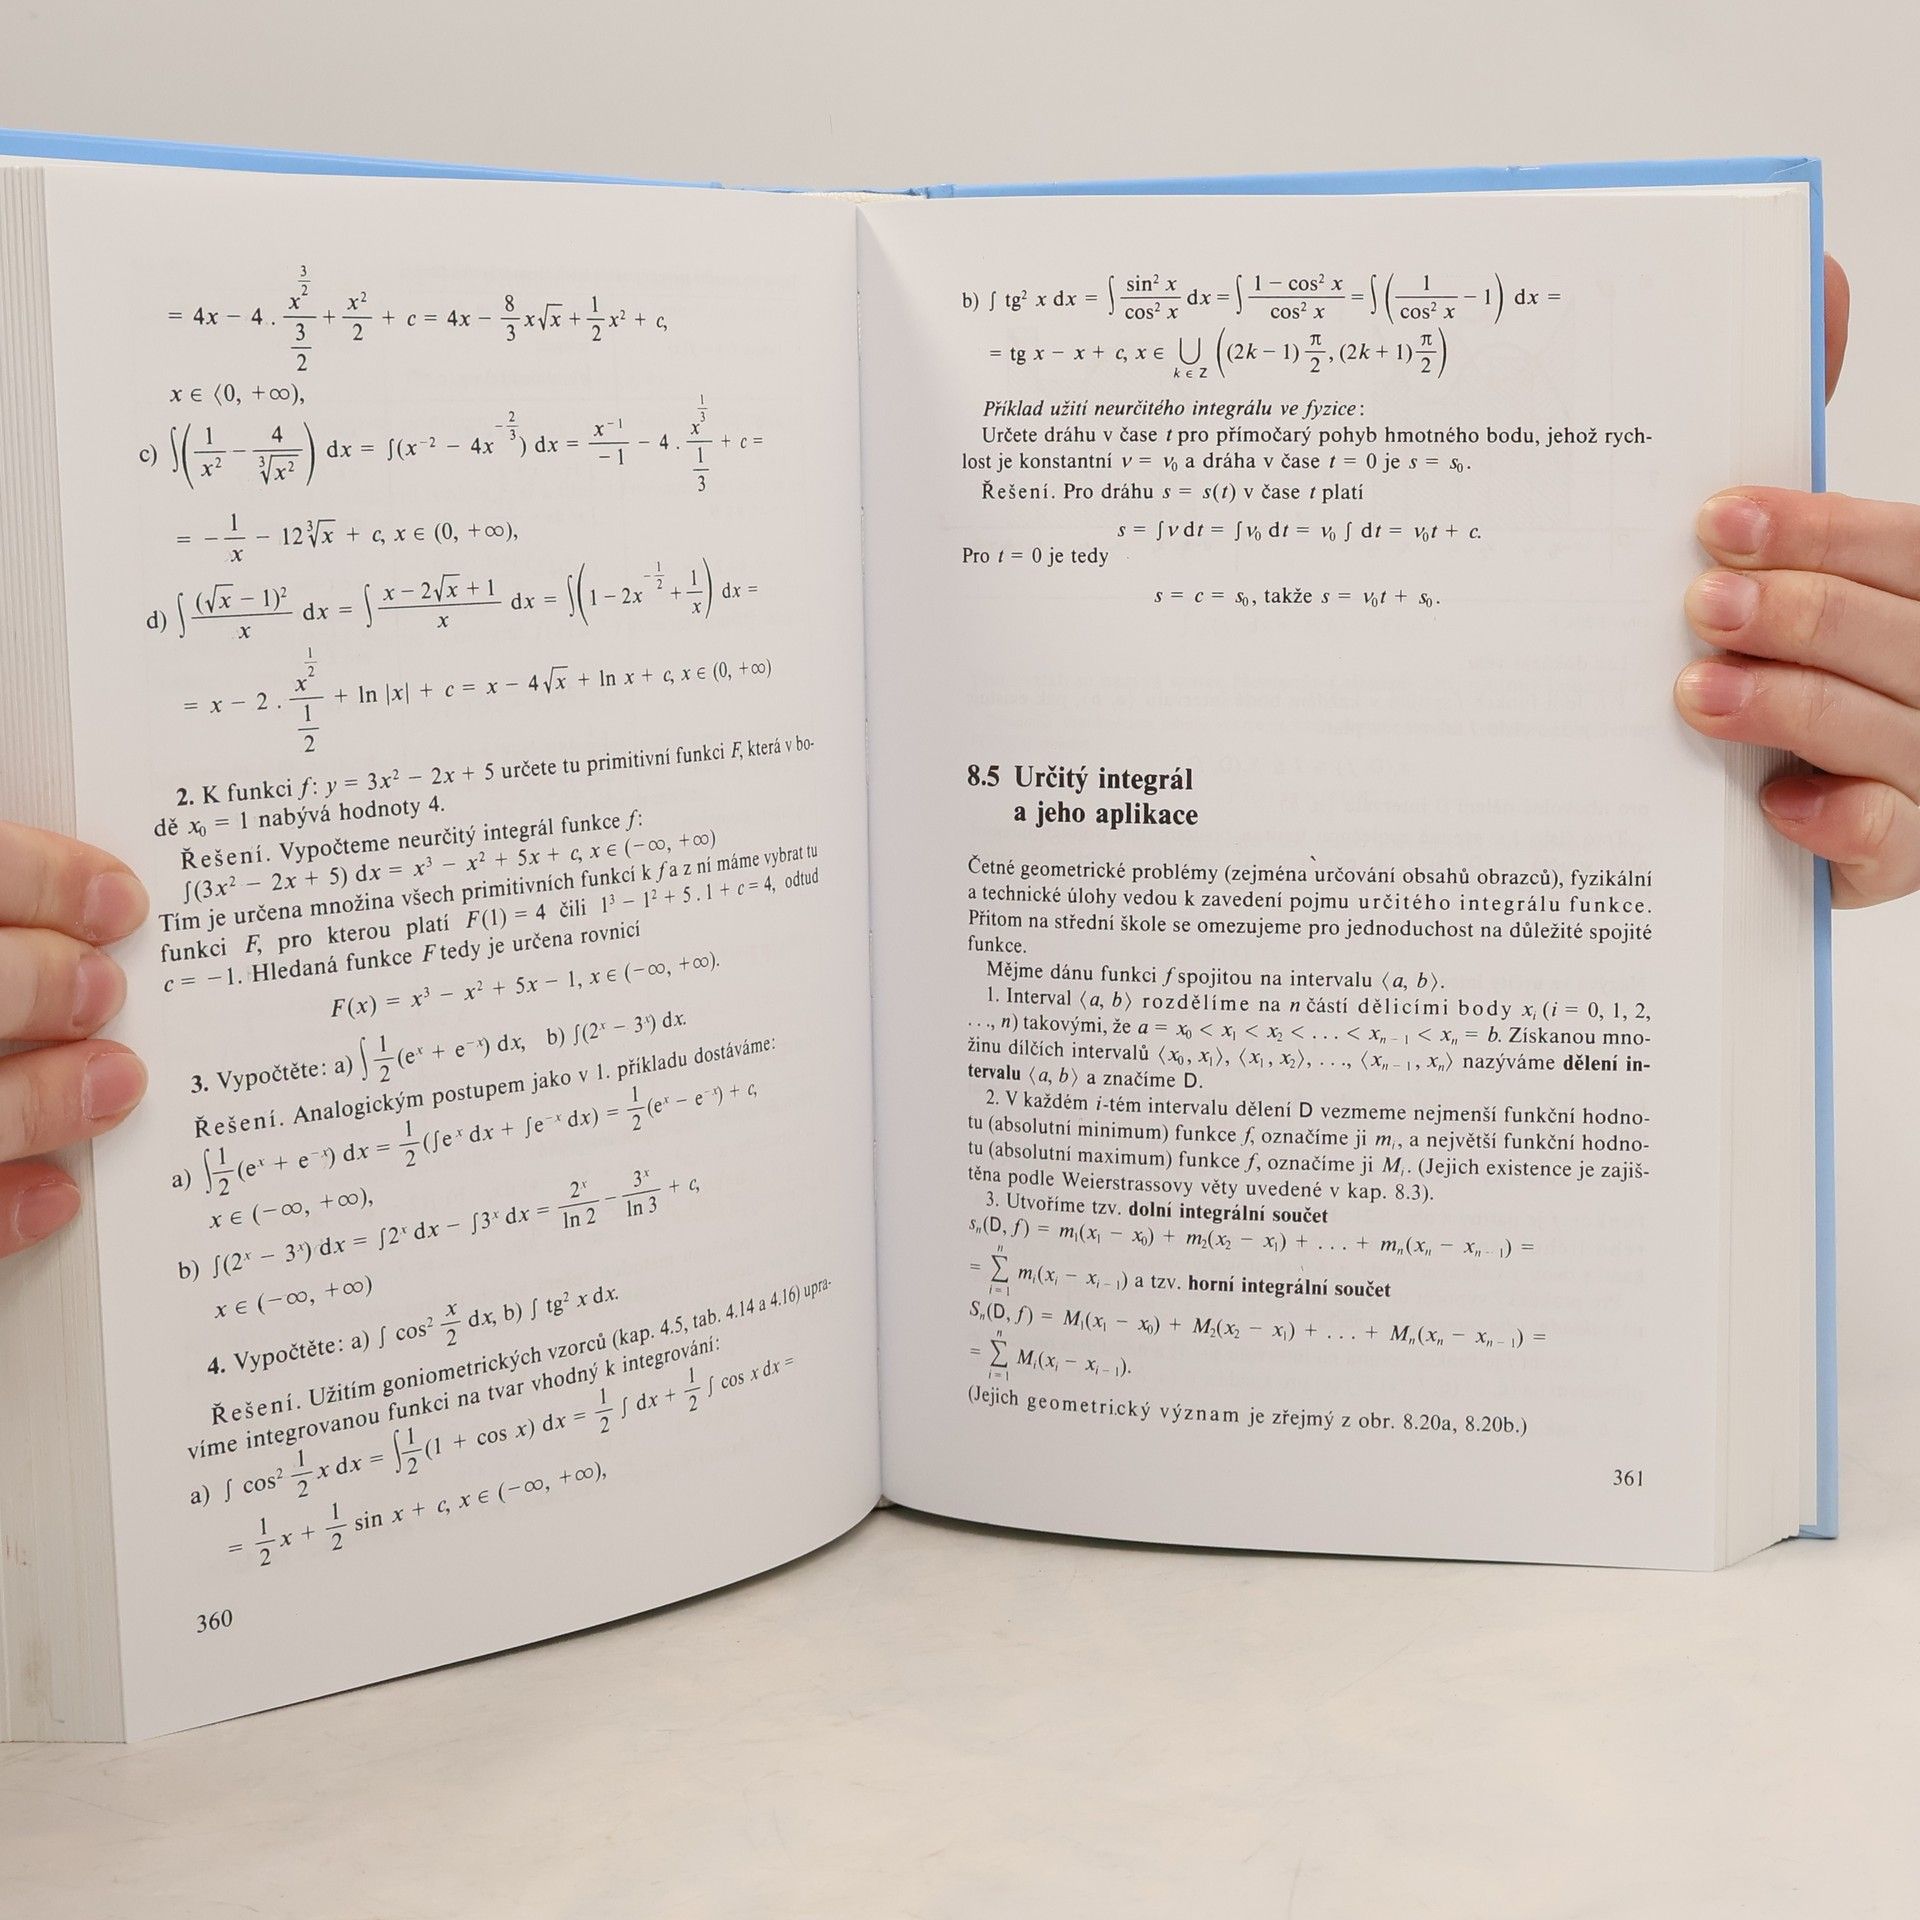 = 4x − 4 . x^(3/2)/(3/2) + x²/2 + c = 4x − 8/3 x√x + 1/2 x² + c,
x ∈ ⟨0, +∞),
c) ∫(1/x² − 4/∛x²) dx = ∫(x⁻² − 4x^(−2/3)) dx = x⁻¹/−1 − 4 . x^(1/3)/(1/3) + c =
= −1/x − 12∛x + c, x ∈ (0, +∞),
d) ∫ (√x − 1)²/x dx = ∫ (x − 2√x + 1)/x dx = ∫(1 − 2x^(−1/2) + 1/x) dx =
= x − 2 . x^(1/2)/(1/2) + ln |x| + c = x − 4√x + ln x + c, x ∈ (0, +∞)
2. K funkci f: y = 3x² − 2x + 5 určete tu primitivní funkci F, která v bo-
dě x₀ = 1 nabývá hodnoty 4.
Řešení. Vypočteme neurčitý integrál funkce f:
∫(3x² − 2x + 5) dx = x³ − x² + 5x + c, x ∈ (−∞, +∞)
Tím je určena množina všech primitivních funkcí k f a z ní máme vybrat tu
funkci F, pro kterou platí F(1) = 4 čili 1³ − 1² + 5 . 1 + c = 4, odtud
c = −1. Hledaná funkce F tedy je určena rovnicí
F(x) = x³ − x² + 5x − 1, x ∈ (−∞, +∞).
3. Vypočtěte: a) ∫ 1/2 (eˣ + e⁻ˣ) dx, b) ∫(2ˣ − 3ˣ) dx.
Řešení. Analogickým postupem jako v 1. příkladu dostáváme:
a) ∫ 1/2 (eˣ + e⁻ˣ) dx = 1/2 (∫eˣ dx + ∫e⁻ˣ dx) = 1/2 (eˣ − e⁻ˣ) + c,
x ∈ (−∞, +∞),
b) ∫(2ˣ − 3ˣ) dx = ∫2ˣ dx − ∫3ˣ dx = 2ˣ/ln 2 − 3ˣ/ln 3 + c,
x ∈ (−∞, +∞)
4. Vypočtěte: a) ∫ cos² x/2 dx, b) ∫ tg² x dx.
Řešení. Užitím goniometrických vzorců (kap. 4.5, tab. 4.14 a 4.16) upra-
víme integrovanou funkci na tvar vhodný k integrování:
a) ∫ cos² 1/2 x dx = ∫ 1/2 (1 + cos x) dx = 1/2 ∫ dx + 1/2 ∫ cos x dx =
= 1/2 x + 1/2 sin x + c, x ∈ (−∞, +∞),
360
b) ∫ tg² x dx = ∫ sin² x/cos² x dx = ∫ (1 − cos² x)/cos² x = ∫(1/cos² x − 1) dx =
= tg x − x + c, x ∈ ⋃ k∈Z ((2k − 1) π/2, (2k + 1) π/2)
Příklad užití neurčitého integrálu ve fyzice:
Určete dráhu v čase t pro přímočarý pohyb hmotného bodu, jehož rych-
lost je konstantní v = v₀ a dráha v čase t = 0 je s = s₀.
Řešení. Pro dráhu s = s(t) v čase t platí
s = ∫v dt = ∫v₀ dt = v₀ ∫ dt = v₀t + c.
Pro t = 0 je tedy
s = c = s₀, takže s = v₀t + s₀.
8.5 Určitý integrál
a jeho aplikace
Četné geometrické problémy (zejména určování obsahů obrazců), fyzikální
a technické úlohy vedou k zavedení pojmu určitého integrálu funkce.
Přitom na střední škole se omezujeme pro jednoduchost na důležité spojité
funkce.
Mějme dánu funkci f spojitou na intervalu ⟨a, b⟩.
1. Interval ⟨a, b⟩ rozdělíme na n částí dělicími body xᵢ (i = 0, 1, 2,
..., n) takovými, že a = x₀ < x₁ < x₂ < ... < xₙ₋₁ < xₙ = b. Získanou mno-
žinu dílčích intervalů ⟨x₀, x₁⟩, ⟨x₁, x₂⟩, ..., ⟨xₙ₋₁, xₙ⟩ nazýváme dělení in-
tervalu ⟨a, b⟩ a značíme D.
2. V každém i-tém intervalu dělení D vezmeme nejmenší funkční hodno-
tu (absolutní minimum) funkce f, označíme ji mᵢ, a největší funkční hodno-
tu (absolutní maximum) funkce f, označíme ji Mᵢ. (Jejich existence je zajiš-
těna podle Weierstrassovy věty uvedené v kap. 8.3).
3. Utvoříme tzv. dolní integrální součet
sₙ(D, f) = m₁(x₁ − x₀) + m₂(x₂ − x₁) + ... + mₙ(xₙ − xₙ₋₁) =
= ∑ⁿᵢ₌₁ mᵢ(xᵢ − xᵢ₋₁) a tzv. horní integrální součet
Sₙ(D, f) = M₁(x₁ − x₀) + M₂(x₂ − x₁) + ... + Mₙ(xₙ − xₙ₋₁) =
= ∑ⁿᵢ₌₁ Mᵢ(xᵢ − xᵢ₋₁).
(Jejich geometrický význam je zřejmý z obr. 8.20a, 8.20b.)
361